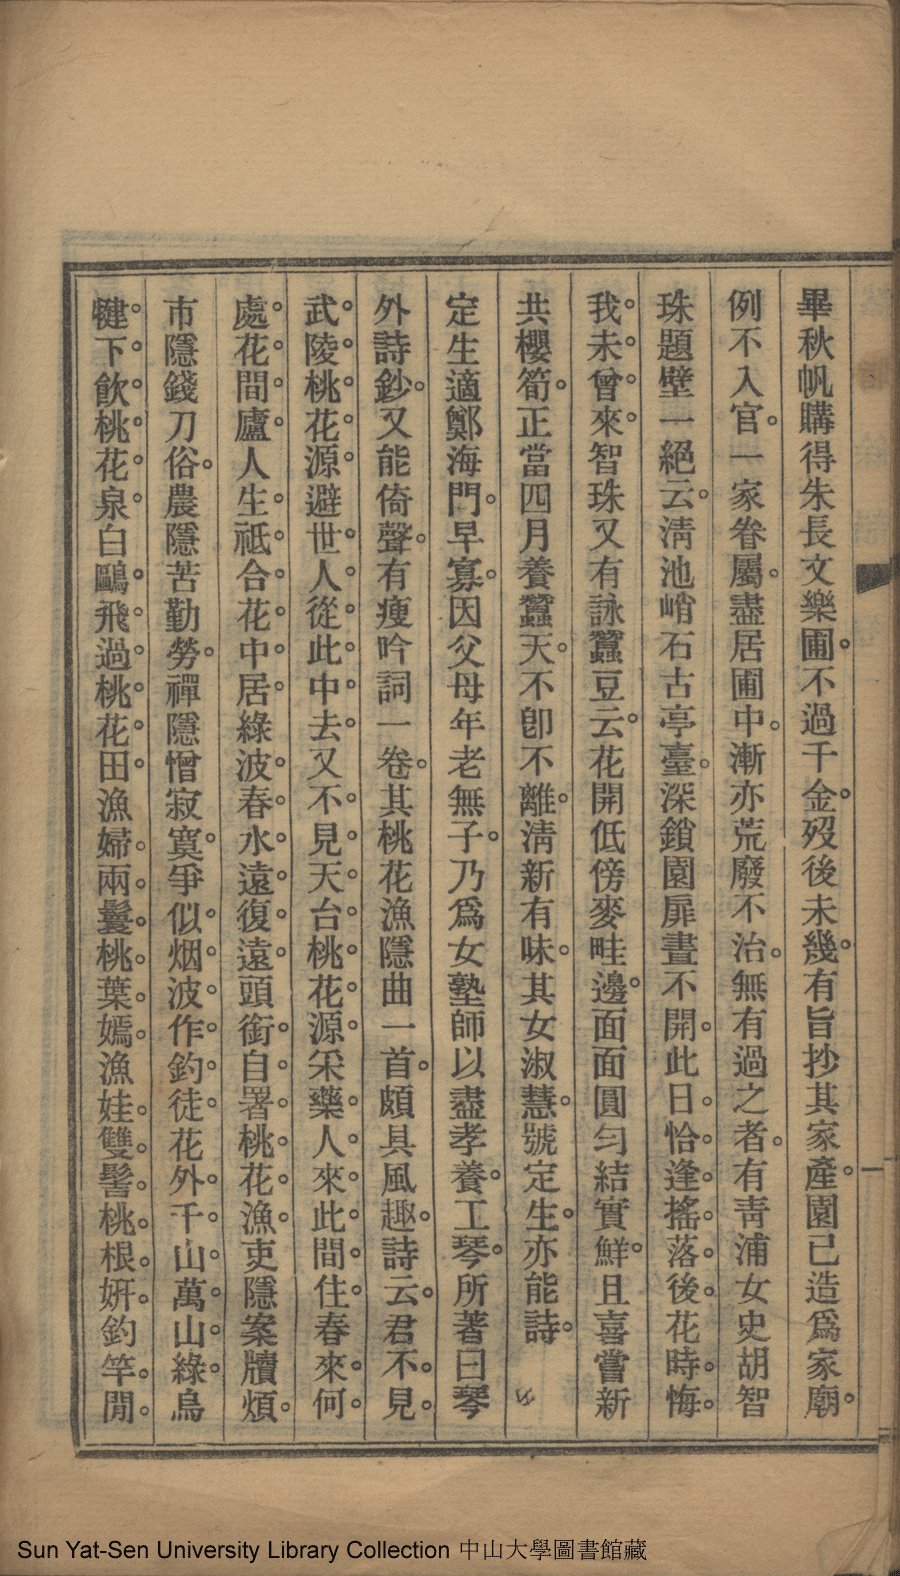 畢秋帆購得朱長文樂圃。不過千金。歿後未幾。有旨抄其家產。園已造爲家廟。
例不入官。一家眷屬。盡居圃中。漸亦荒廢不治。無有過之者。有靑浦女史胡智
珠題壁一絕云。淸池峭石古亭臺。深鎖園扉晝不開。此日。恰。逢。搖。落。後。花時。悔。
我。未。曾。來。智珠又有詠蠶豆云。花開低傍麥畦邊。面面圓勻結實鮮。且喜嘗新
共櫻筍。正當四月養蠶天。不卽不離。淸新有味。其女淑慧。號定生。亦能詩。
定生適鄭海門。早寡。因父母年老無子。乃爲女塾師以盡孝養。工琴。所著曰琴
外詩鈔。又能倚聲。有瘦吟詞一卷。其桃花漁隱曲一首。頗具風趣。詩云。君不。見。
武。陵。桃。花。源。避世。人。從。此。中。去。又不。見。天。台。桃。花。源。采藥。人。來。此。間。住。春來。何。
處。花。間。廬。人生。祗。合。花。中。居。綠波。春。水。遠。復。遠。頭銜。自。署。桃。花。漁。吏隱案牘煩。
市隱錢刀俗。農隱苦勤勞。禪隱憎寂寞。爭似。烟。波。作。釣。徒。花外。千。山。萬。山。綠。烏
犍。下。飲。桃。花。泉。白鷗。飛。過。桃。花。田。漁婦。兩。鬟。桃。葉。嫣。漁娃。雙。髻。桃。根。妍。釣竿。閒。
Sun Yat-Sen University Library Collection 中山大學圖書館藏